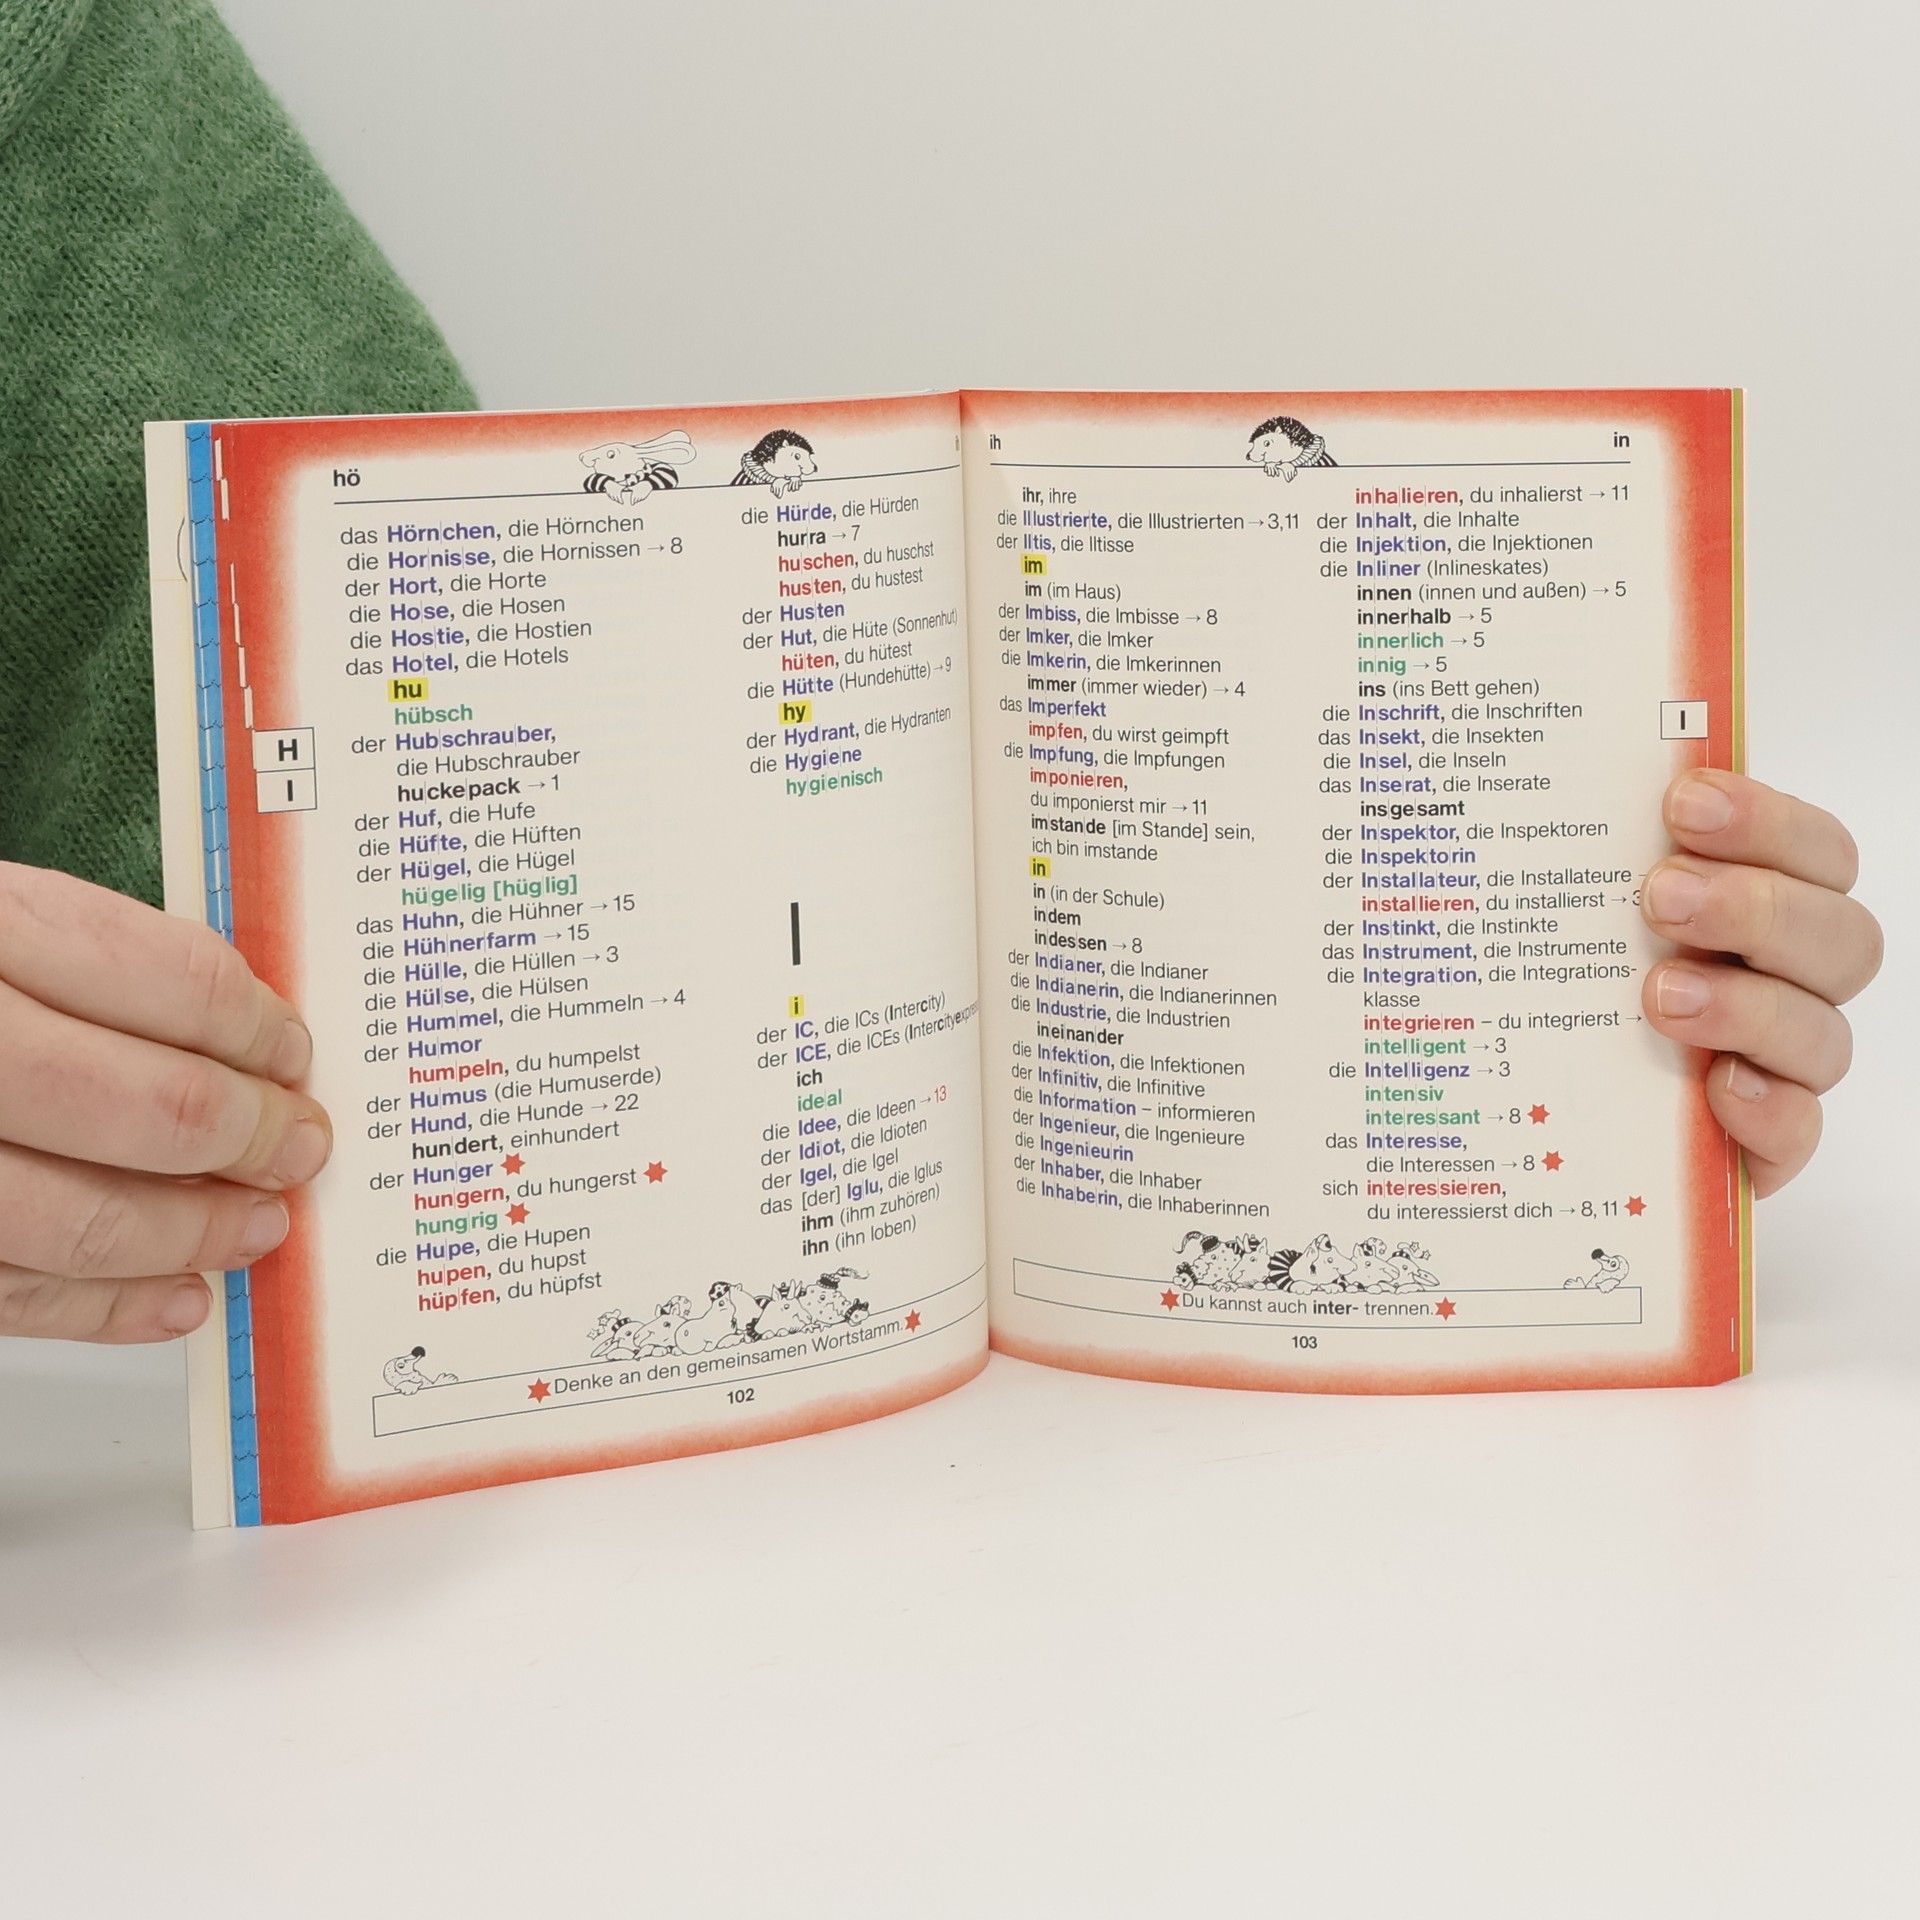 hö
das Hörnchen, die Hörnchen
die Hornisse, die Hornissen → 8
der Hort, die Horte
die Hose, die Hosen
die Hostie, die Hostien
das Hotel, die Hotels
hu
hübsch
der Hubschrauber,
die Hubschrauber
huckepack → 1
der Huf, die Hufe
die Hüfte, die Hüften
der Hügel, die Hügel
hügelig [hüglig]
das Huhn, die Hühner → 15
die Hühnerfarm → 15
die Hülle, die Hüllen → 3
die Hülse, die Hülsen
die Hummel, die Hummeln → 4
der Humor
humpeln, du humpelst
der Humus (die Humuserde)
der Hund, die Hunde → 22
hundert, einhundert
der Hunger
hungern, du hungerst
hungrig
die Hupe, die Hupen
hupen, du hupst
hüpfen, du hüpfst
H
I
die Hürde, die Hürden
hurra → 7
huschen, du huschst
husten, du hustest
der Husten
der Hut, die Hüte (Sonnenhut)
hüten, du hütest
die Hütte (Hundehütte) → 9
hy
der Hydrant, die Hydranten
die Hygiene
hygienisch
I
i
der IC, die ICs (Intercity)
der ICE, die ICEs (Intercityexpress
ich
ideal
die Idee, die Ideen → 13
der Idiot, die Idioten
der Igel, die Igel
das [der] Iglu, die Iglus
ihm (ihm zuhören)
ihn (ihn loben)
Denke an den gemeinsamen Wortstamm.
102
ih
in
ihr, ihre
die Illustrierte, die Illustrierten → 3,11
der Iltis, die Iltisse
im
im (im Haus)
der Imbiss, die Imbisse → 8
der Imker, die Imker
die Imkerin, die Imkerinnen
immer (immer wieder) → 4
das Imperfekt
impfen, du wirst geimpft
die Impfung, die Impfungen
imponieren,
du imponierst mir → 11
imstande [im Stande] sein,
ich bin imstande
in
in (in der Schule)
indem
indessen → 8
der Indianer, die Indianer
die Indianerin, die Indianerinnen
die Industrie, die Industrien
ineinander
die Infektion, die Infektionen
der Infinitiv, die Infinitive
die Information – informieren
der Ingenieur, die Ingenieure
die Ingenieurin
der Inhaber, die Inhaber
die Inhaberin, die Inhaberinnen
inhalieren, du inhalierst → 11
der Inhalt, die Inhalte
die Injektion, die Injektionen
die Inliner (Inlineskates)
innen (innen und außen) → 5
innerhalb → 5
innerlich → 5
innig → 5
ins (ins Bett gehen)
die Inschrift, die Inschriften
das Insekt, die Insekten
die Insel, die Inseln
das Inserat, die Inserate
insgesamt
der Inspektor, die Inspektoren
die Inspektorin
der Installateur, die Installateure
installieren, du installierst → 3
der Instinkt, die Instinkte
das Instrument, die Instrumente
die Integration, die Integrations-
klasse
integrieren – du integrierst →
intelligent → 3
die Intelligenz → 3
intensiv
interessant → 8
das Interesse,
die Interessen → 8
sich interessieren,
du interessierst dich → 8, 11
I
Du kannst auch inter- trennen.
103